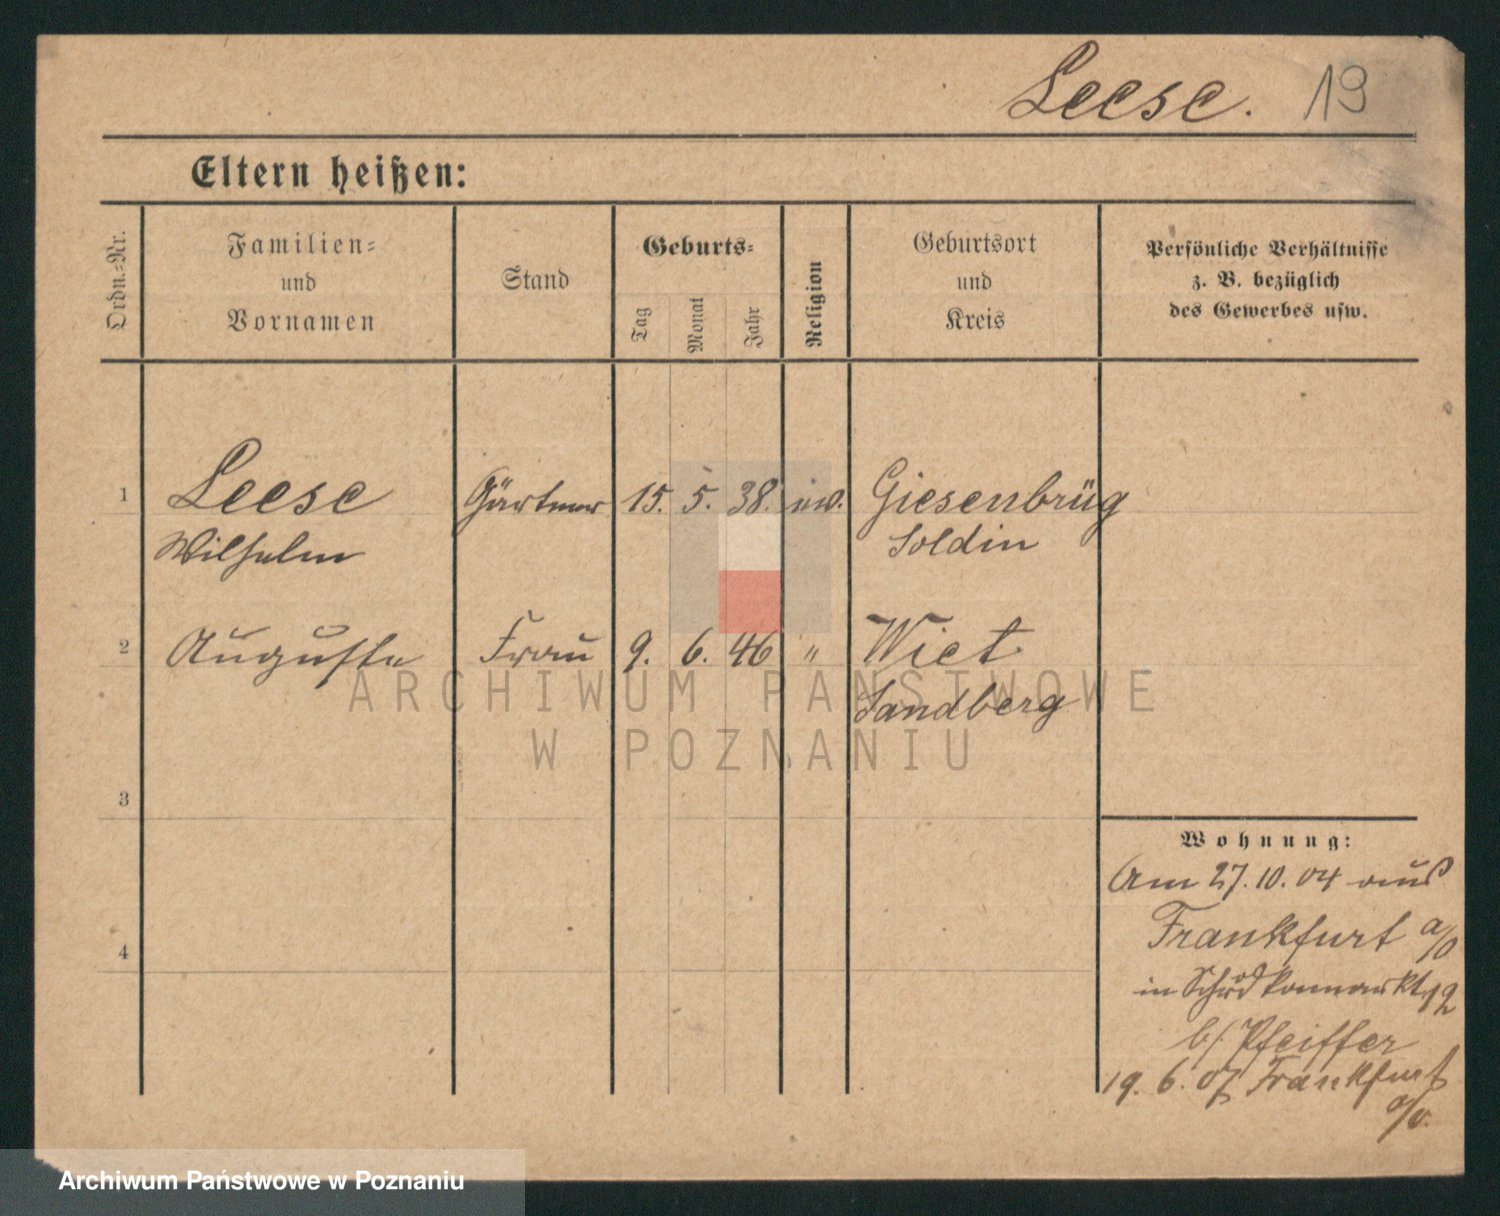 Leese. 19
Eltern heißen:
Ordn.=Nr.
Familien=
und
Vornamen
Stand
Geburts=
Tag
Monat
Jahr
Religion
Geburtsort
und
Kreis
Persönliche Verhältnisse
z. B. bezüglich
des Gewerbes usw.
1 Leese Gärtner 15. 5. 38. Giesenbrüg
Wilhelm Soldin
2 Auguste Frau 9. 6. 46 " Wiet
Sandberg
3
4
Wohnung:
Am 27. 10. 04 aus
Frankfurt a/O
in 12
b/ Pfeiffer
19. 6. 07 Frankfurt
a/O.
ARCHIWUM PAŃSTWOWE
W POZNANIU
Archiwum Państwowe w Poznaniu